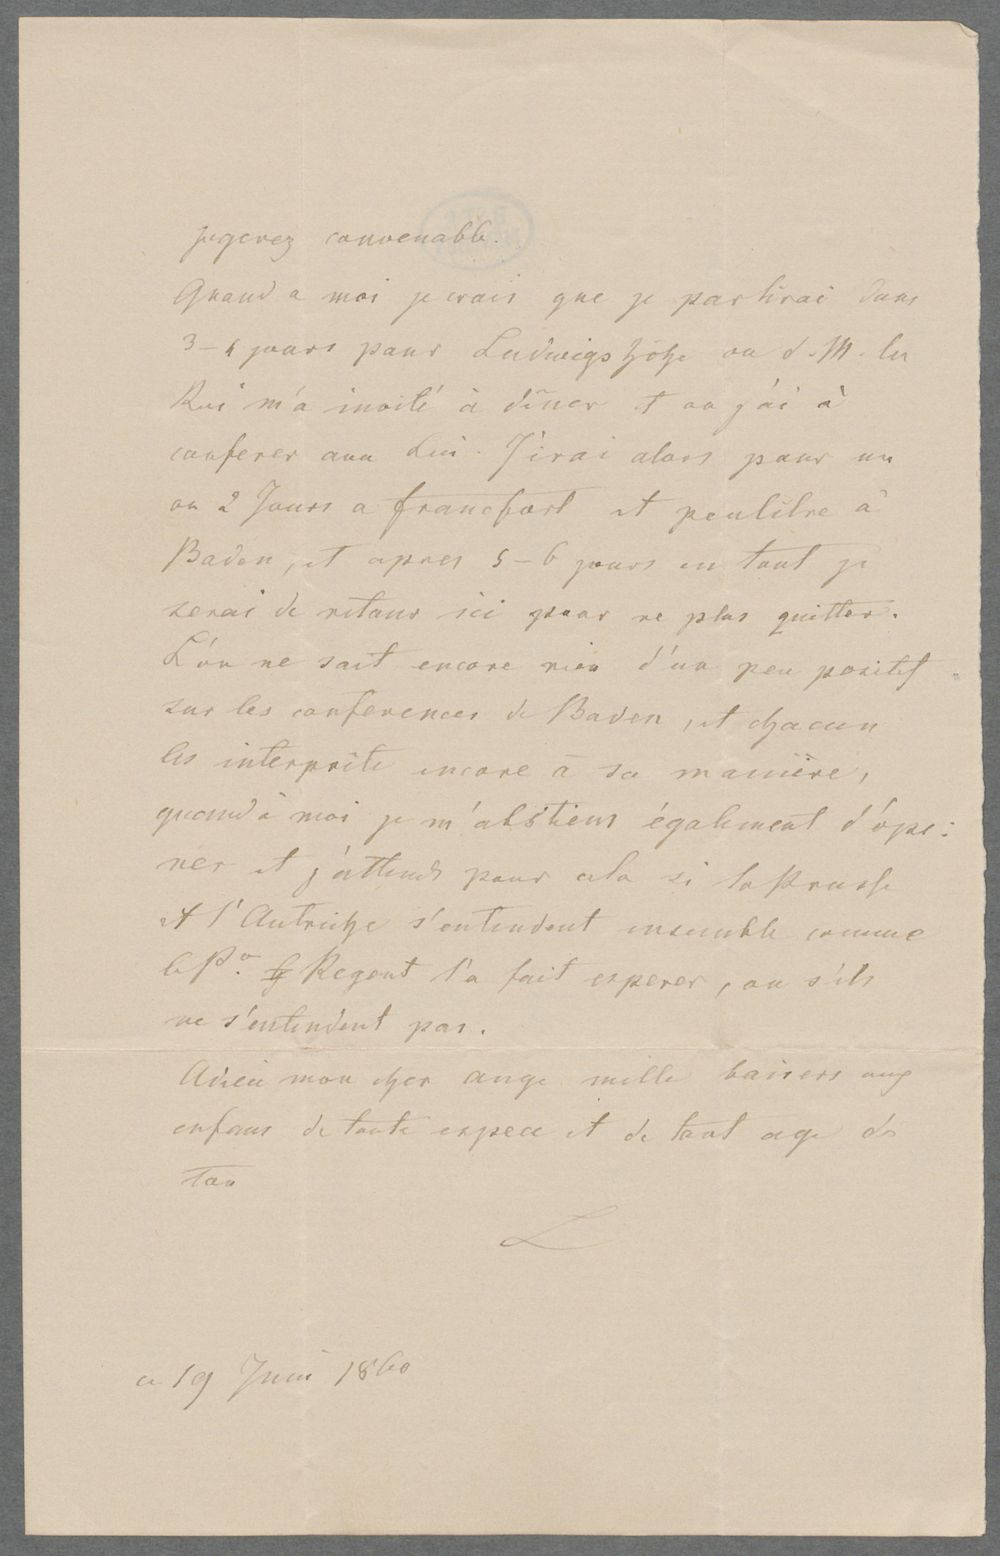 jugerez convenable.
Quand a moi je crois que je partirai dans
3–4 jours pour Ludwigshöhe ou S. M. le
Roi m'a invité à dîner et ou j'ai à
conferer avec Lui. J'irai alors pour un
ou 2 Jours a francfort et peutêtre à
Baden, et apres 5–6 jours en tout je
serai de retour ici pour ne plus quitter.
L'on ne sait encore rien d'un peu positif
sur les conferences de Baden, et chacun
les interprète encore à sa manière,
quand à moi je m'abstiens également d'opi:
ner et j'attends pour cela si la Prusse
et l'Autriche s'entendent ensemble comme
le P. Regent l'a fait esperer, ou s'ils
ne s'entendent pas.
Adieu mon cher ange mille baisers aux
enfans de toute espece et de tout age de
ton
L
ce 19 Juin 1860